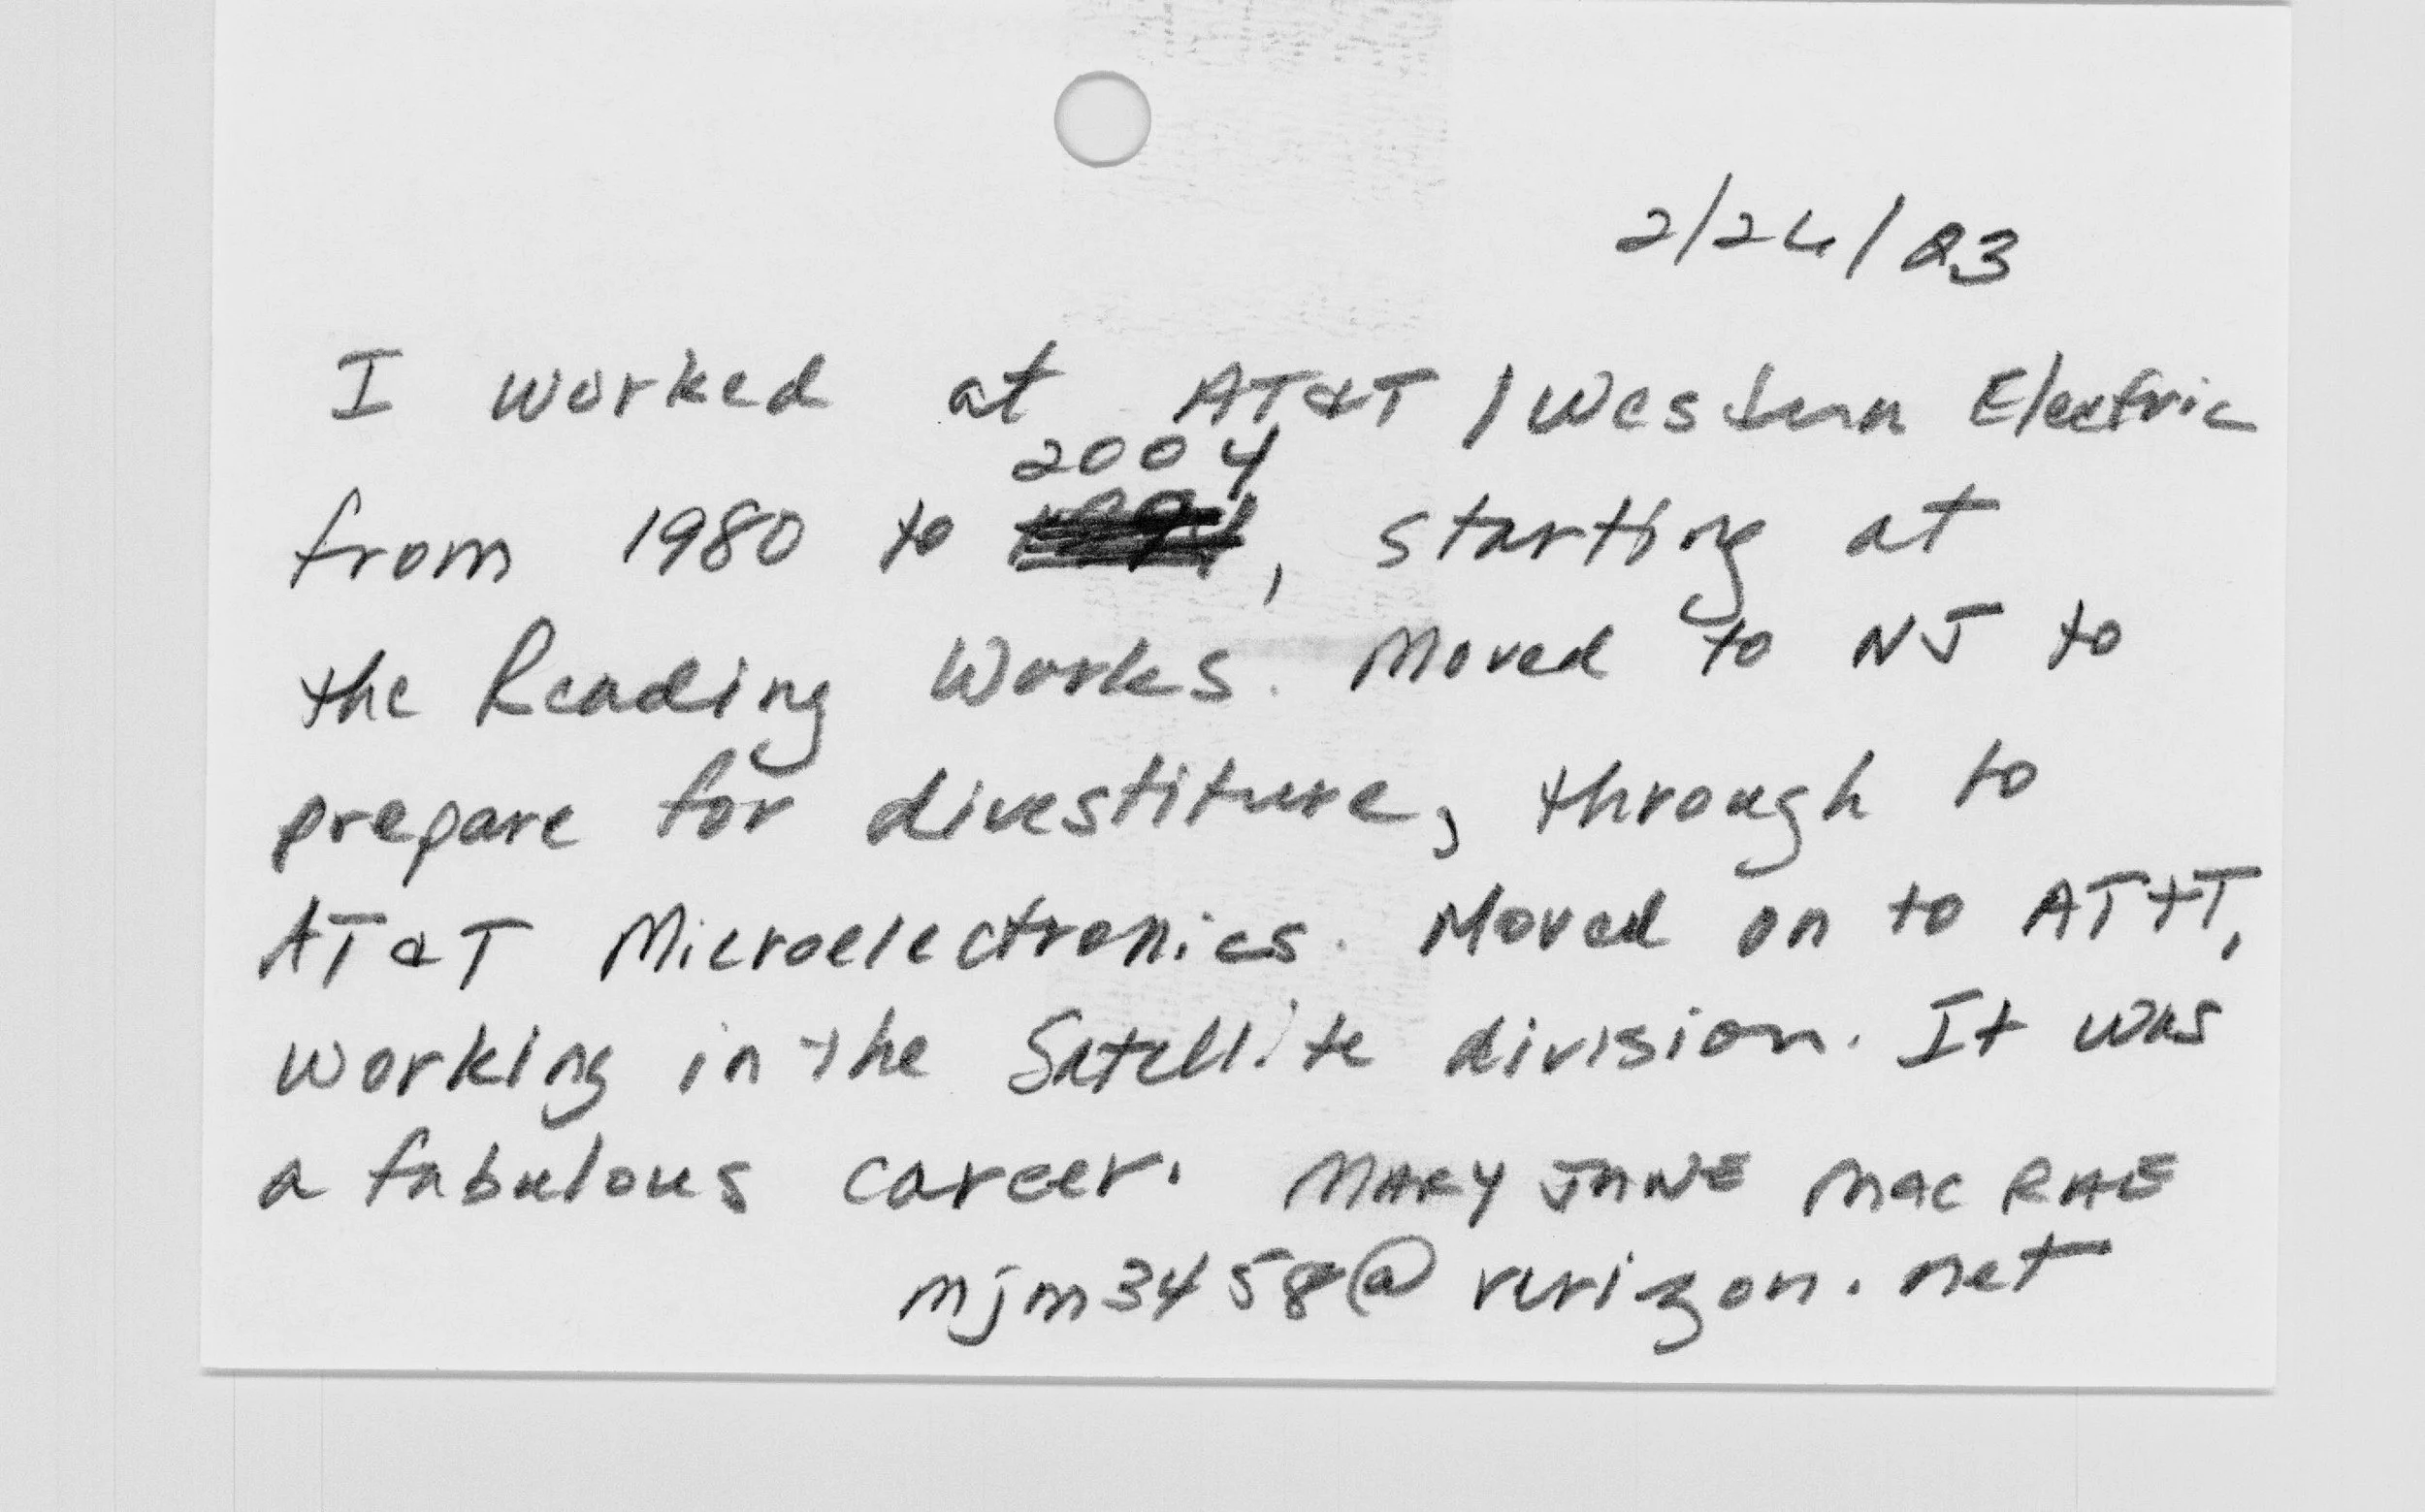 2/26/23
I worked at AT&T / Western Electric
2004
from 1980 to , starting at
the Reading Works. Moved to NJ to
prepare for divestiture, through to
AT&T Microelectronics. Moved on to AT+T,
working in the Satellite division. It was
a fabulous career. MARY JANE MAC RAE
mjm3458@verizon.net